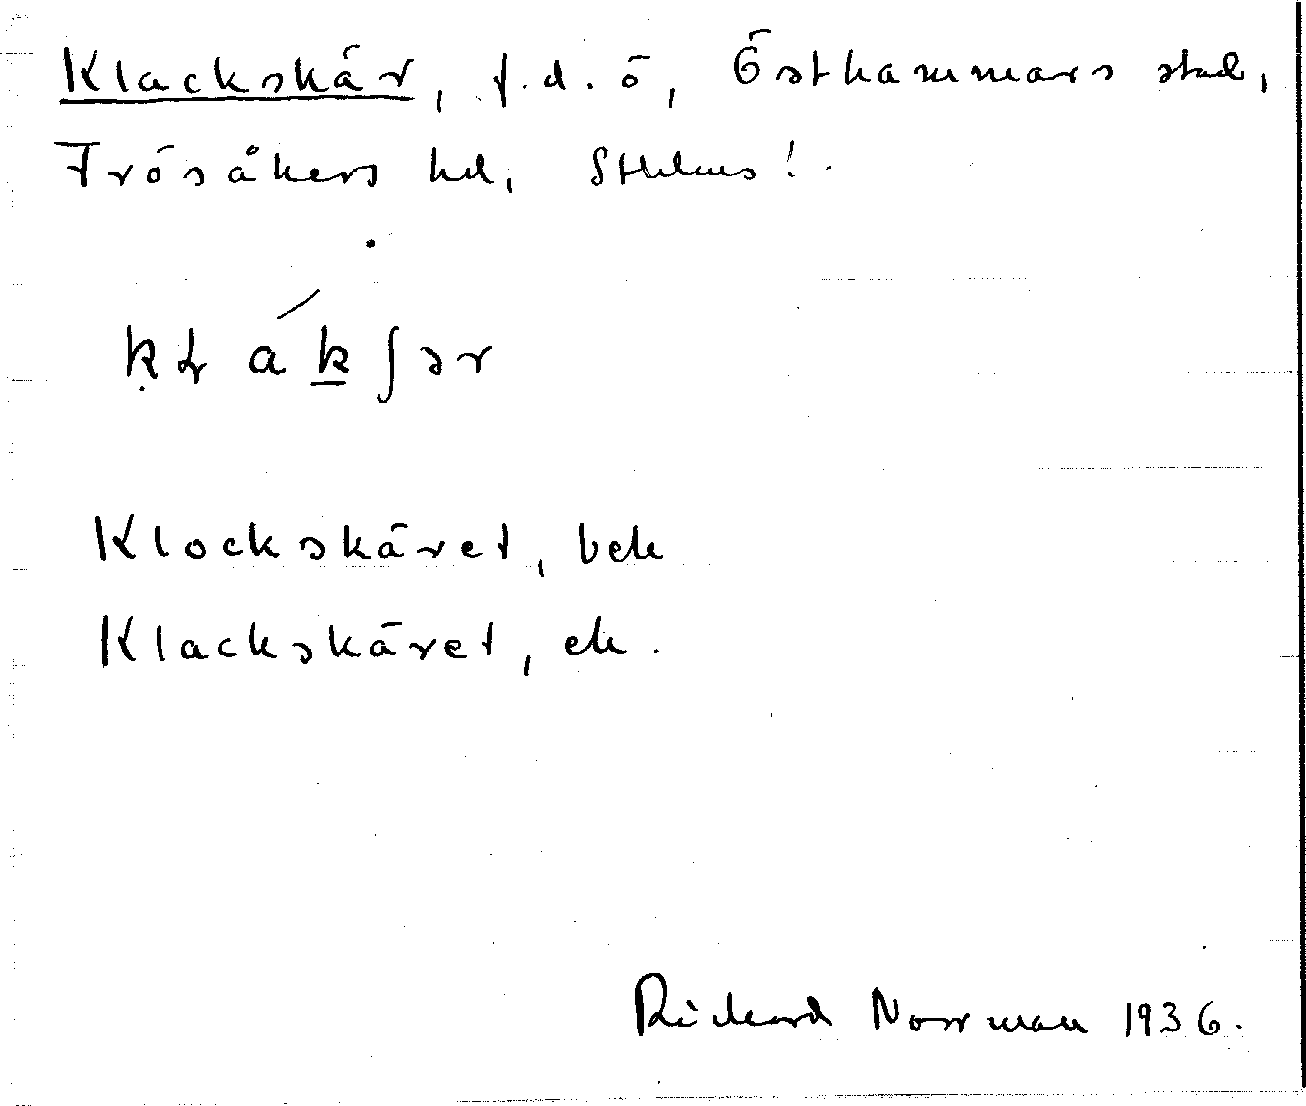 Klackskär, f.d. ö, Östhammars stad,
Frösåkers hd, Sthlms l.
kɫákʃər
Klockskäret, bek
Klackskäret, ek.
Rickard Norrman 1936.